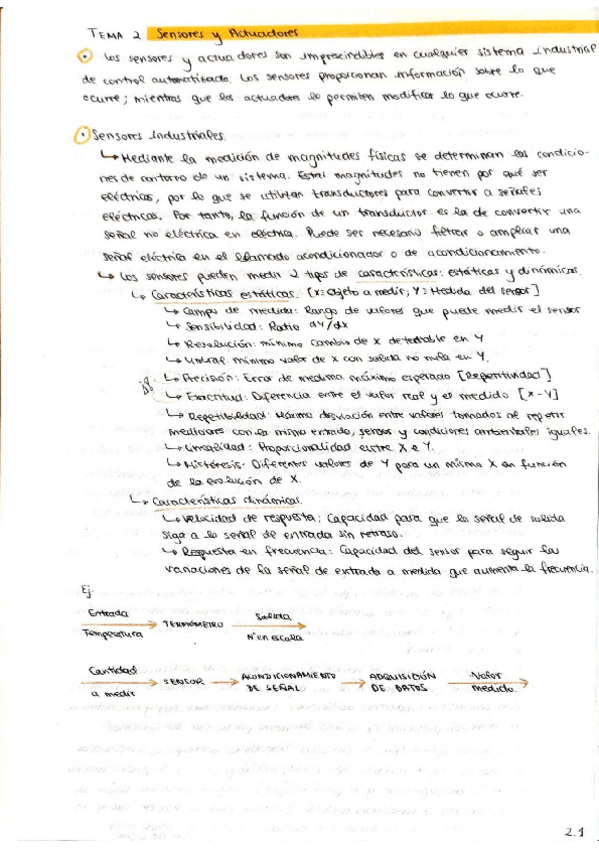 TEMA 2 Sensores y Actuadores
• Los sensores y actuadores son imprescindibles en cualquier sistema industrial
de control automatizado. Los sensores proporcionan información sobre lo que
ocurre; mientras que los actuadores le permiten modificar lo que ocurre.
• Sensores industriales.
↳ Mediante la medición de magnitudes físicas se determinan las condicio-
nes de contorno de un sistema. Estas magnitudes no tienen por qué ser
eléctricas, por lo que se utilizan transductores para convertir a señales
eléctricas. Por tanto, la función de un transductor es la de convertir una
señal no eléctrica en eléctrica. Puede ser necesario filtrar o ampliar una
señal eléctrica en el llamado acondicionador o de acondicionamiento.
↳ Los sensores pueden medir 2 tipos de características: estáticas y dinámicas.
↳ Características estáticas. [X=Objeto a medir; Y= Medida del sensor]
↳ Campo de medida: Rango de valores que puede medir el sensor
↳ Sensibilidad: Ratio dY/dX
↳ Resolución: mínimo cambio de X detectable en Y
↳ Umbral: mínimo valor de X con salida no nula en Y.
↳ Precisión: Error de medida máximo esperado [Repetitividad]
↳ Exactitud: Diferencia entre el valor real y el medido [X-Y]
↳ Repetibilidad: Máxima desviación entre valores tomados al repetir
mediciones con la misma entrada, sensor y condiciones ambientales iguales.
↳ Linealidad: Proporcionalidad entre X e Y.
↳ Histéresis: Diferentes valores de Y para un mismo X en función
de la evolución de X.
↳ Características dinámicas.
↳ Velocidad de respuesta: Capacidad para que la señal de salida
siga a la señal de entrada sin retraso.
↳ Respuesta en frecuencia: Capacidad del sensor para seguir las
variaciones de la señal de entrada a medida que aumenta la frecuencia.
Ej
Entrada Temperatura → TERMÓMETRO Salida → Nº en escala
Cantidad a medir → SENSOR → ACONDICIONAMIENTO DE SEÑAL → ADQUISICIÓN DE DATOS Valor medido →
2.1